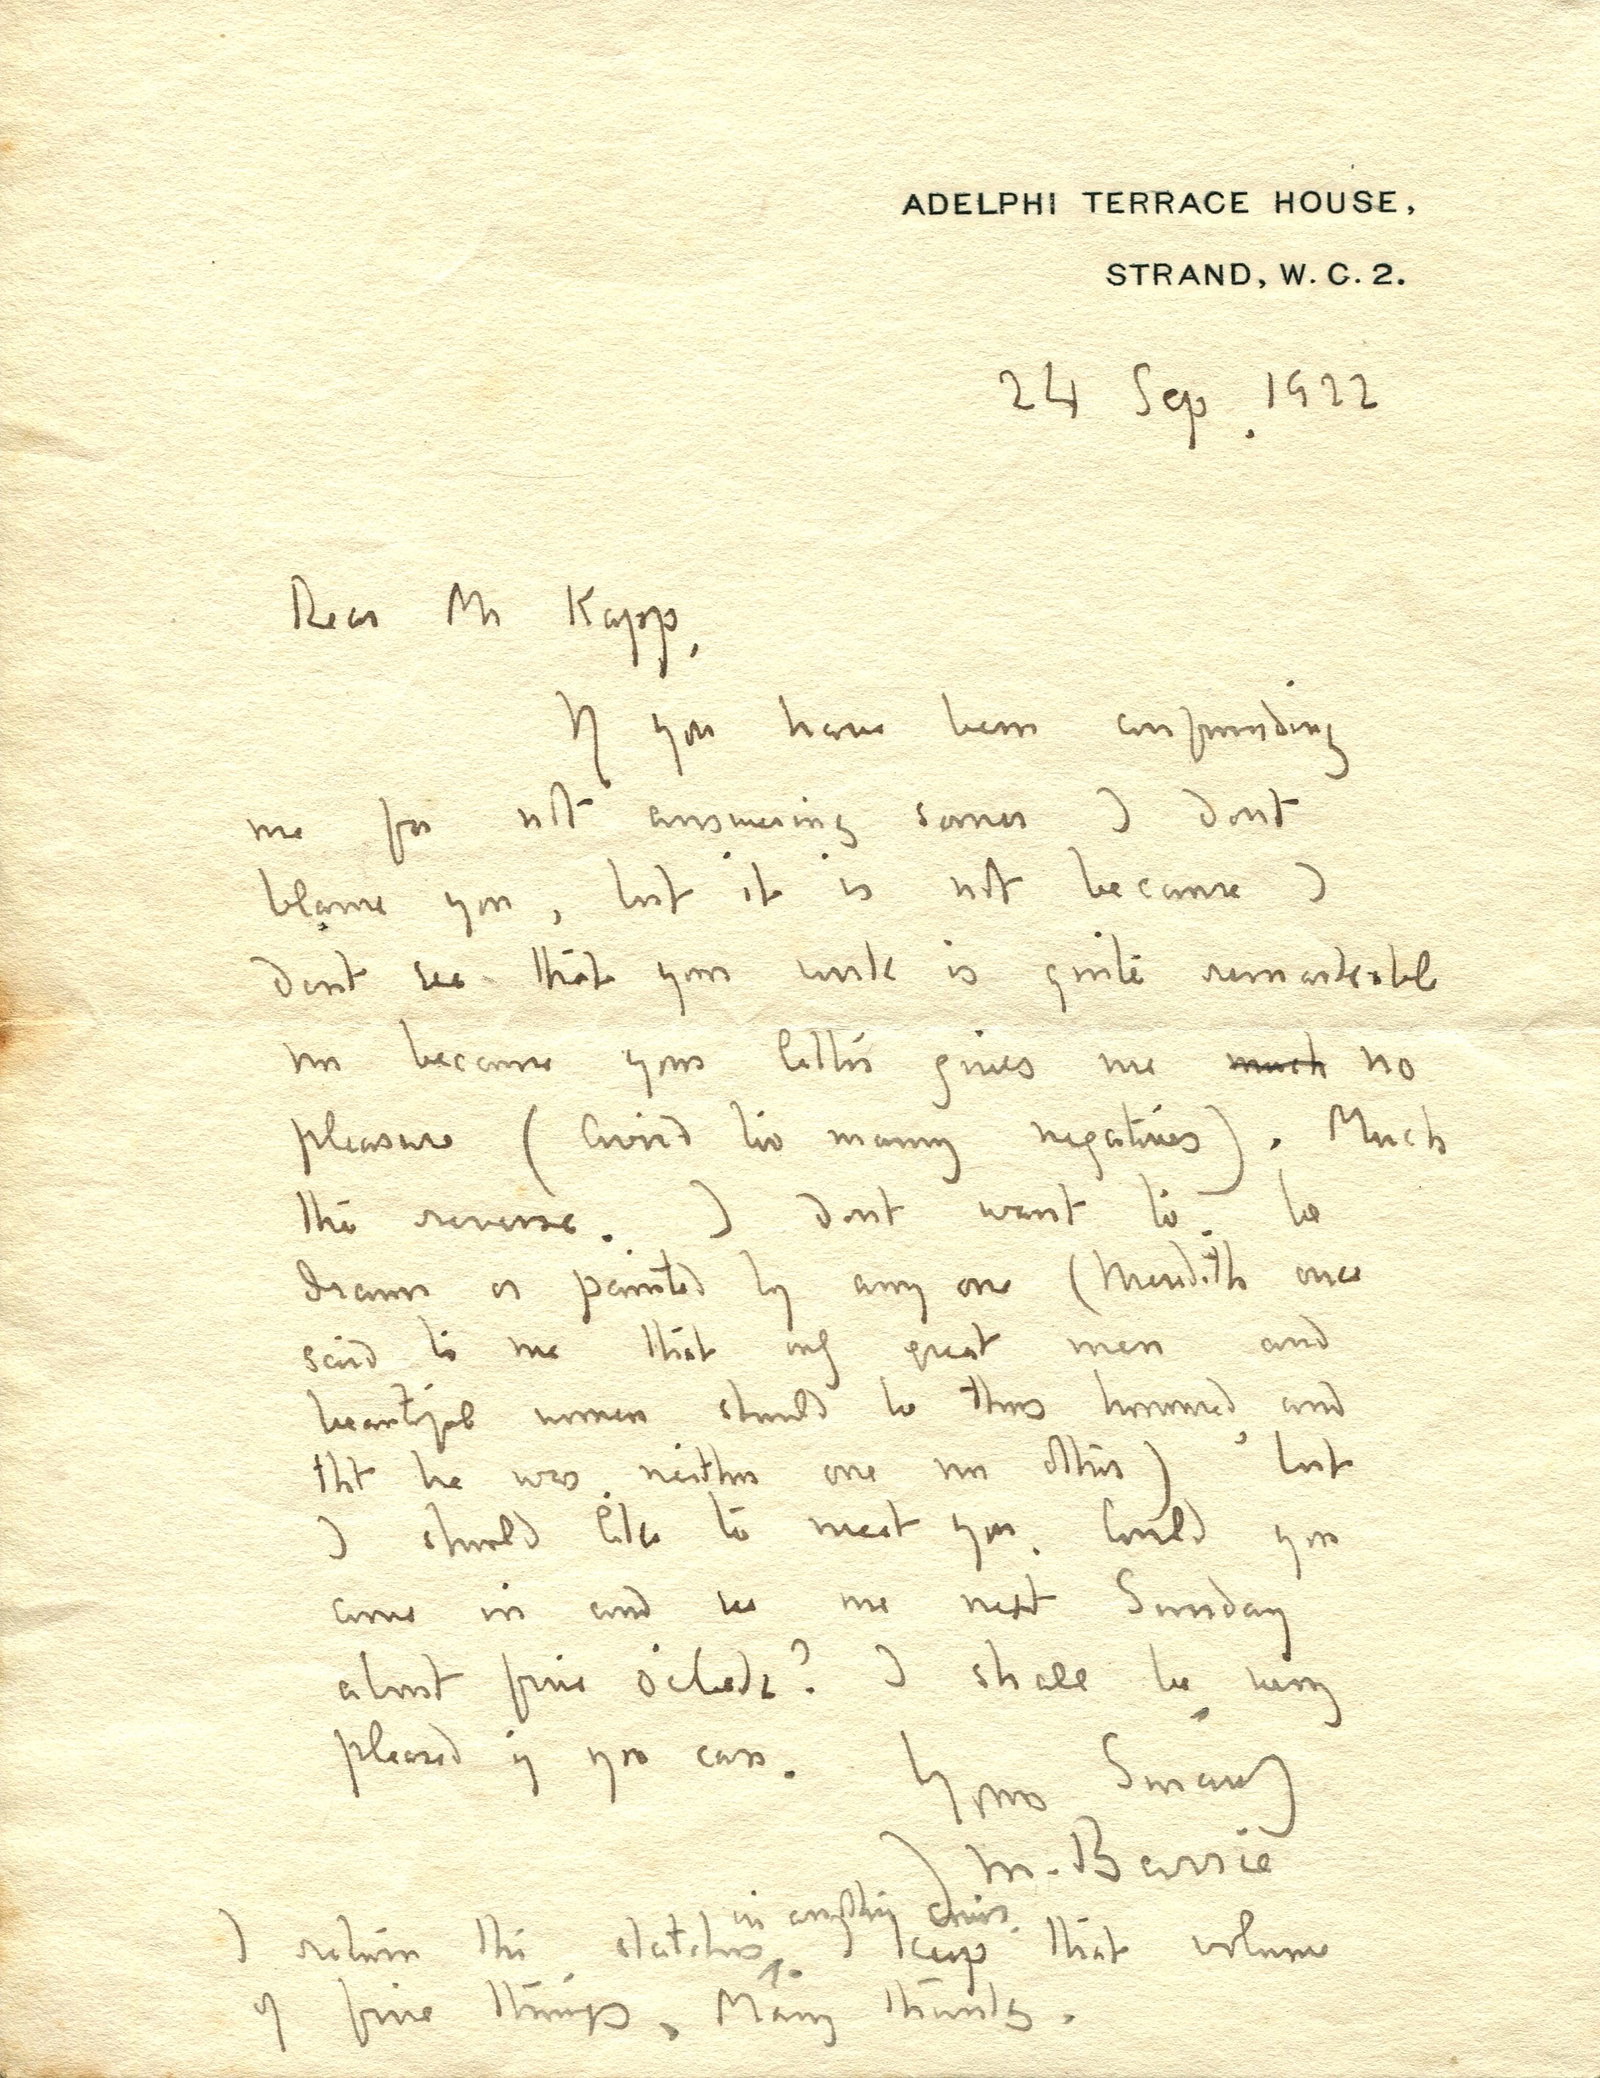 ADELPHI TERRACE HOUSE,
STRAND, W.C.2.
24 Sep. 1922
Dear Mr Kapp,
If you have been confounding
me for not answering sooner I dont
blame you, but it is not because I
dont see that your work is quite remarkable
nor because your letter gives me much no
pleasure (Avoid too many negatives). Much
the reverse. I dont want to be
drawn or painted by any one (Meredith once
said to me that only great men and
beautiful women should be thus honoured, and
tht he was neither one nor other) but
I should like to meet you. Could you
come in and see me next Sunday
about five o'clock? I shall be very
pleased if you can. Yours Sincerely
J M. Barrie
I return the sketches in another cover. I keep that volume
of fine things. Many thanks.